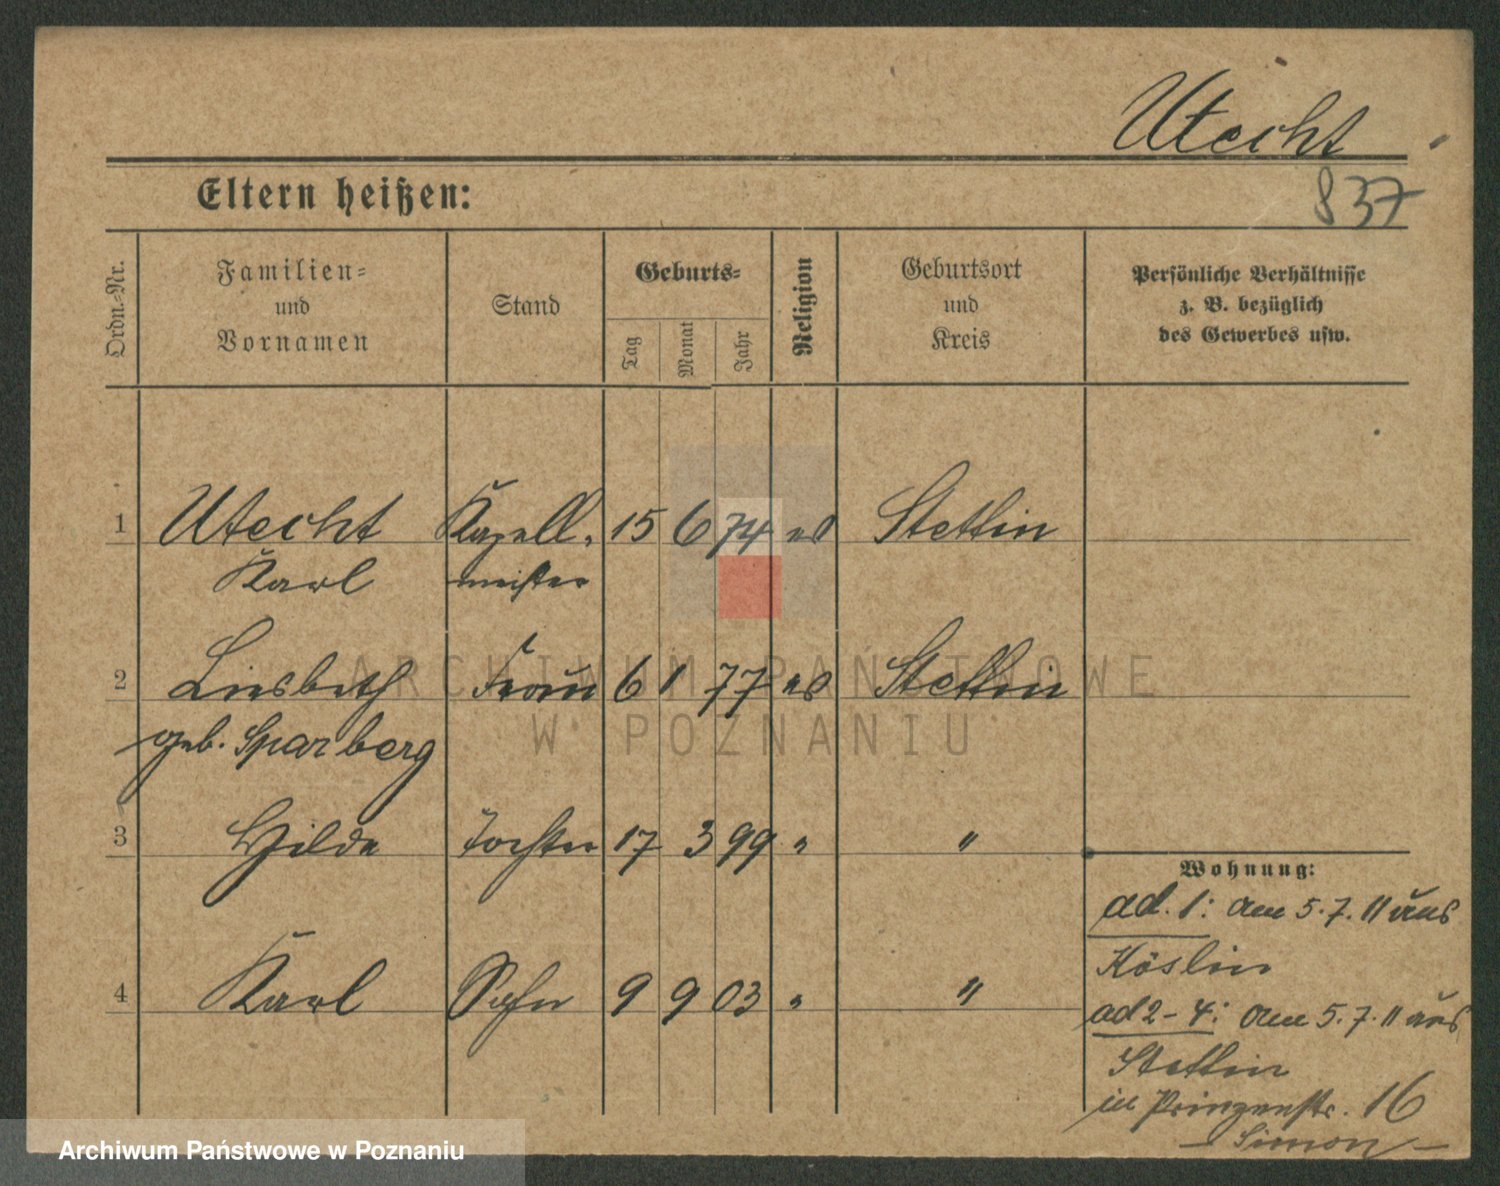 Utecht
837
Eltern heißen:
Ordn.-Nr.
Familien-
und
Vornamen
Stand
Geburts-
Tag
Monat
Jahr
Religion
Geburtsort
und
Kreis
Persönliche Verhältnisse
z. B. bezüglich
des Gewerbes usw.
1 Utecht Kapell- 15 6 74 ev Stettin
Karl meister
2 Liesbeth Frau 6 1 77 ev Stettin
geb. Sparberg
3 Hilde Tochter 17 3 99 " "
Wohnung:
ad. 1: am 5.7.11 aus
Köslin
4 Karl Sohn 9 9 03 " "
ad 2-4: am 5.7.11 aus
Stettin
in Prinzenstr. 16
Simon
ARCHIWUM PAŃSTWOWE
W POZNANIU
Archiwum Państwowe w Poznaniu